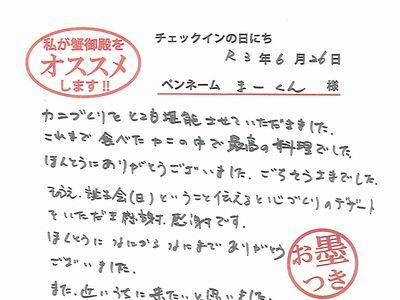 私が蟹御殿を
オススメ
します!!
チェックインの日にち
R3年6月26日
ペンネーム まーくん 様
カニづくしとても堪能させていただきました。
これまで食べたカニの中で最高の料理でした。
ほんとうにありがとうございました。ごちそうさまでした。
そうそう、誕生会(日)ということ伝えると心づくりのデザート
をいただき感謝、感謝です。
ほんとうに なにから なにまで ありがとう
ございました。
また、近いうちに来たいと思いました。
お墨
つき